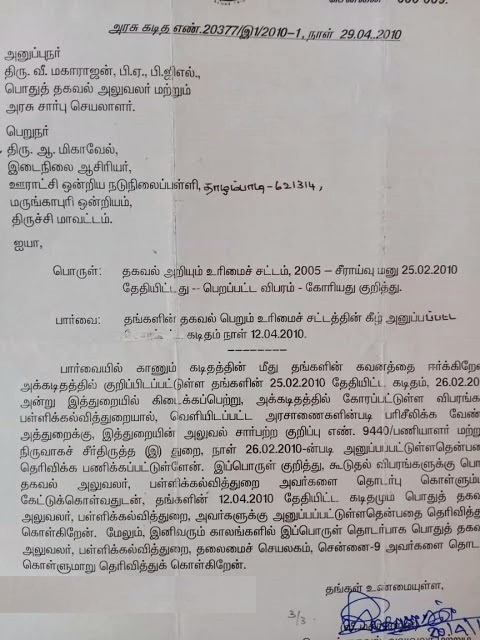 சென்னை 600 009.
அரசு கடித எண்.20377/இ1/2010-1, நாள் 29.04..2010
அனுப்புநர்
திரு. வீ. மகாராஜன், பி.ஏ., பி.ஜிஎல்.,
பொதுத் தகவல் அலுவலர் மற்றும்
அரசு சார்பு செயலாளர்.
பெறுநர்
திரு. ஆ. மிகாவேல்,
இடைநிலை ஆசிரியர்,
ஊராட்சி ஒன்றிய நடுநிலைப்பள்ளி, தாழம்பாடி-621314,
மருங்காபுரி ஒன்றியம்,
திருச்சி மாவட்டம்.
ஐயா,
பொருள்: தகவல் அறியும் உரிமைச் சட்டம், 2005 – சீராய்வு மனு 25.02.2010
தேதியிட்டது -- பெறப்பட்ட விபரம் - கோரியது குறித்து.
பார்வை: தங்களின் தகவல் பெறும் உரிமைச் சட்டத்தின் கீழ் அனுப்பப்பட்ட
கடிதம் நாள் 12.04.2010.
---------
பார்வையில் காணும் கடிதத்தின் மீது தங்களின் கவனத்தை ஈர்க்கிறே
அக்கடிதத்தில் குறிப்பிடப்பட்டுள்ள தங்களின் 25.02.2010 தேதியிட்ட கடிதம், 26.02.20
அன்று இத்துறையில் கிடைக்கப்பெற்று, அக்கடிதத்தில் கோரப்பட்டுள்ள விபரங்க
பள்ளிக்கல்வித்துறையால், வெளியிடப்பட்ட அரசாணைகளின்படி பரிசீலிக்க வேண்
அத்துறைக்கு, இத்துறையின் அலுவல் சார்பற்ற குறிப்பு எண். 9440/பணியாளர் மற்றும்
நிருவாகச் சீர்திருத்த (இ) துறை, நாள் 26.02.2010-ன்படி அனுப்பப்பட்டுள்ளதென்பதை
தெரிவிக்க பணிக்கப்பட்டுள்ளேன். இப்பொருள் குறித்து, கூடுதல் விபரங்களுக்கு பொ
தகவல் அலுவலர், பள்ளிக்கல்வித்துறை அவர்களை தொடர்பு கொள்ளும்ப
கேட்டுக்கொள்வதுடன், தங்களின் 12.04.2010 தேதியிட்ட கடிதமும் பொதுத் தகவ
அலுவலர், பள்ளிக்கல்வித்துறை, அவர்களுக்கு அனுப்பப்பட்டுள்ளதென்பதை தெரிவித்து
கொள்கிறேன். மேலும், இனிவரும் காலங்களில் இப்பொருள் தொடர்பாக பொதுத் தகவ
அலுவலர், பள்ளிக்கல்வித்துறை, தலைமைச் செயலகம், சென்னை-9 அவர்களை தொட
கொள்ளுமாறு தெரிவித்துக் கொள்கிறேன்.
தங்கள் உண்மையுள்ள,
3/3